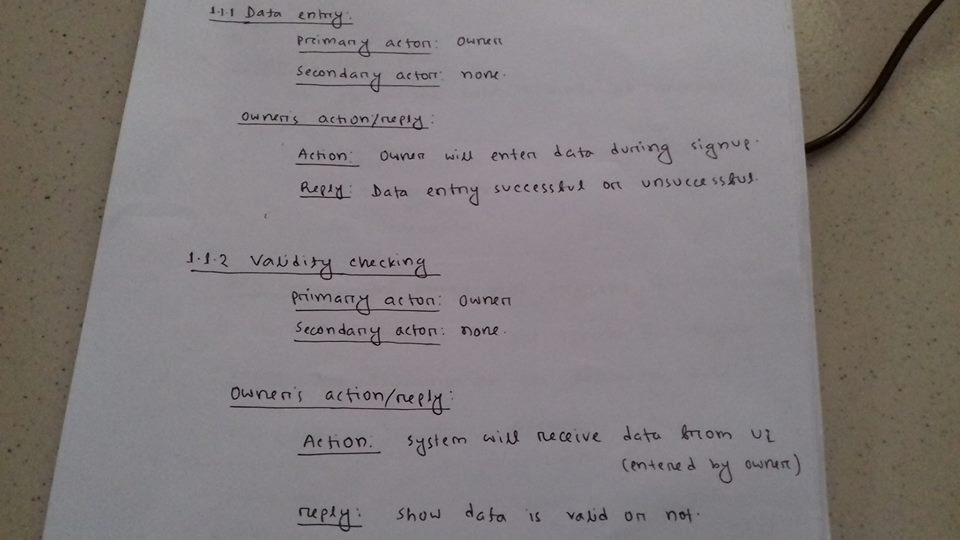 1.1.1 Data entry:
Primary actor: owner
Secondary actor: none.
Owner's action/reply:
Action: Owner will enter data during signup.
Reply: Data entry successful or unsuccessful.
1.1.2 Validity checking
Primary actor: owner
Secondary actor: none.
Owner's action/reply:
Action: System will receive data from UI
(entered by owner)
reply: show data is valid or not.